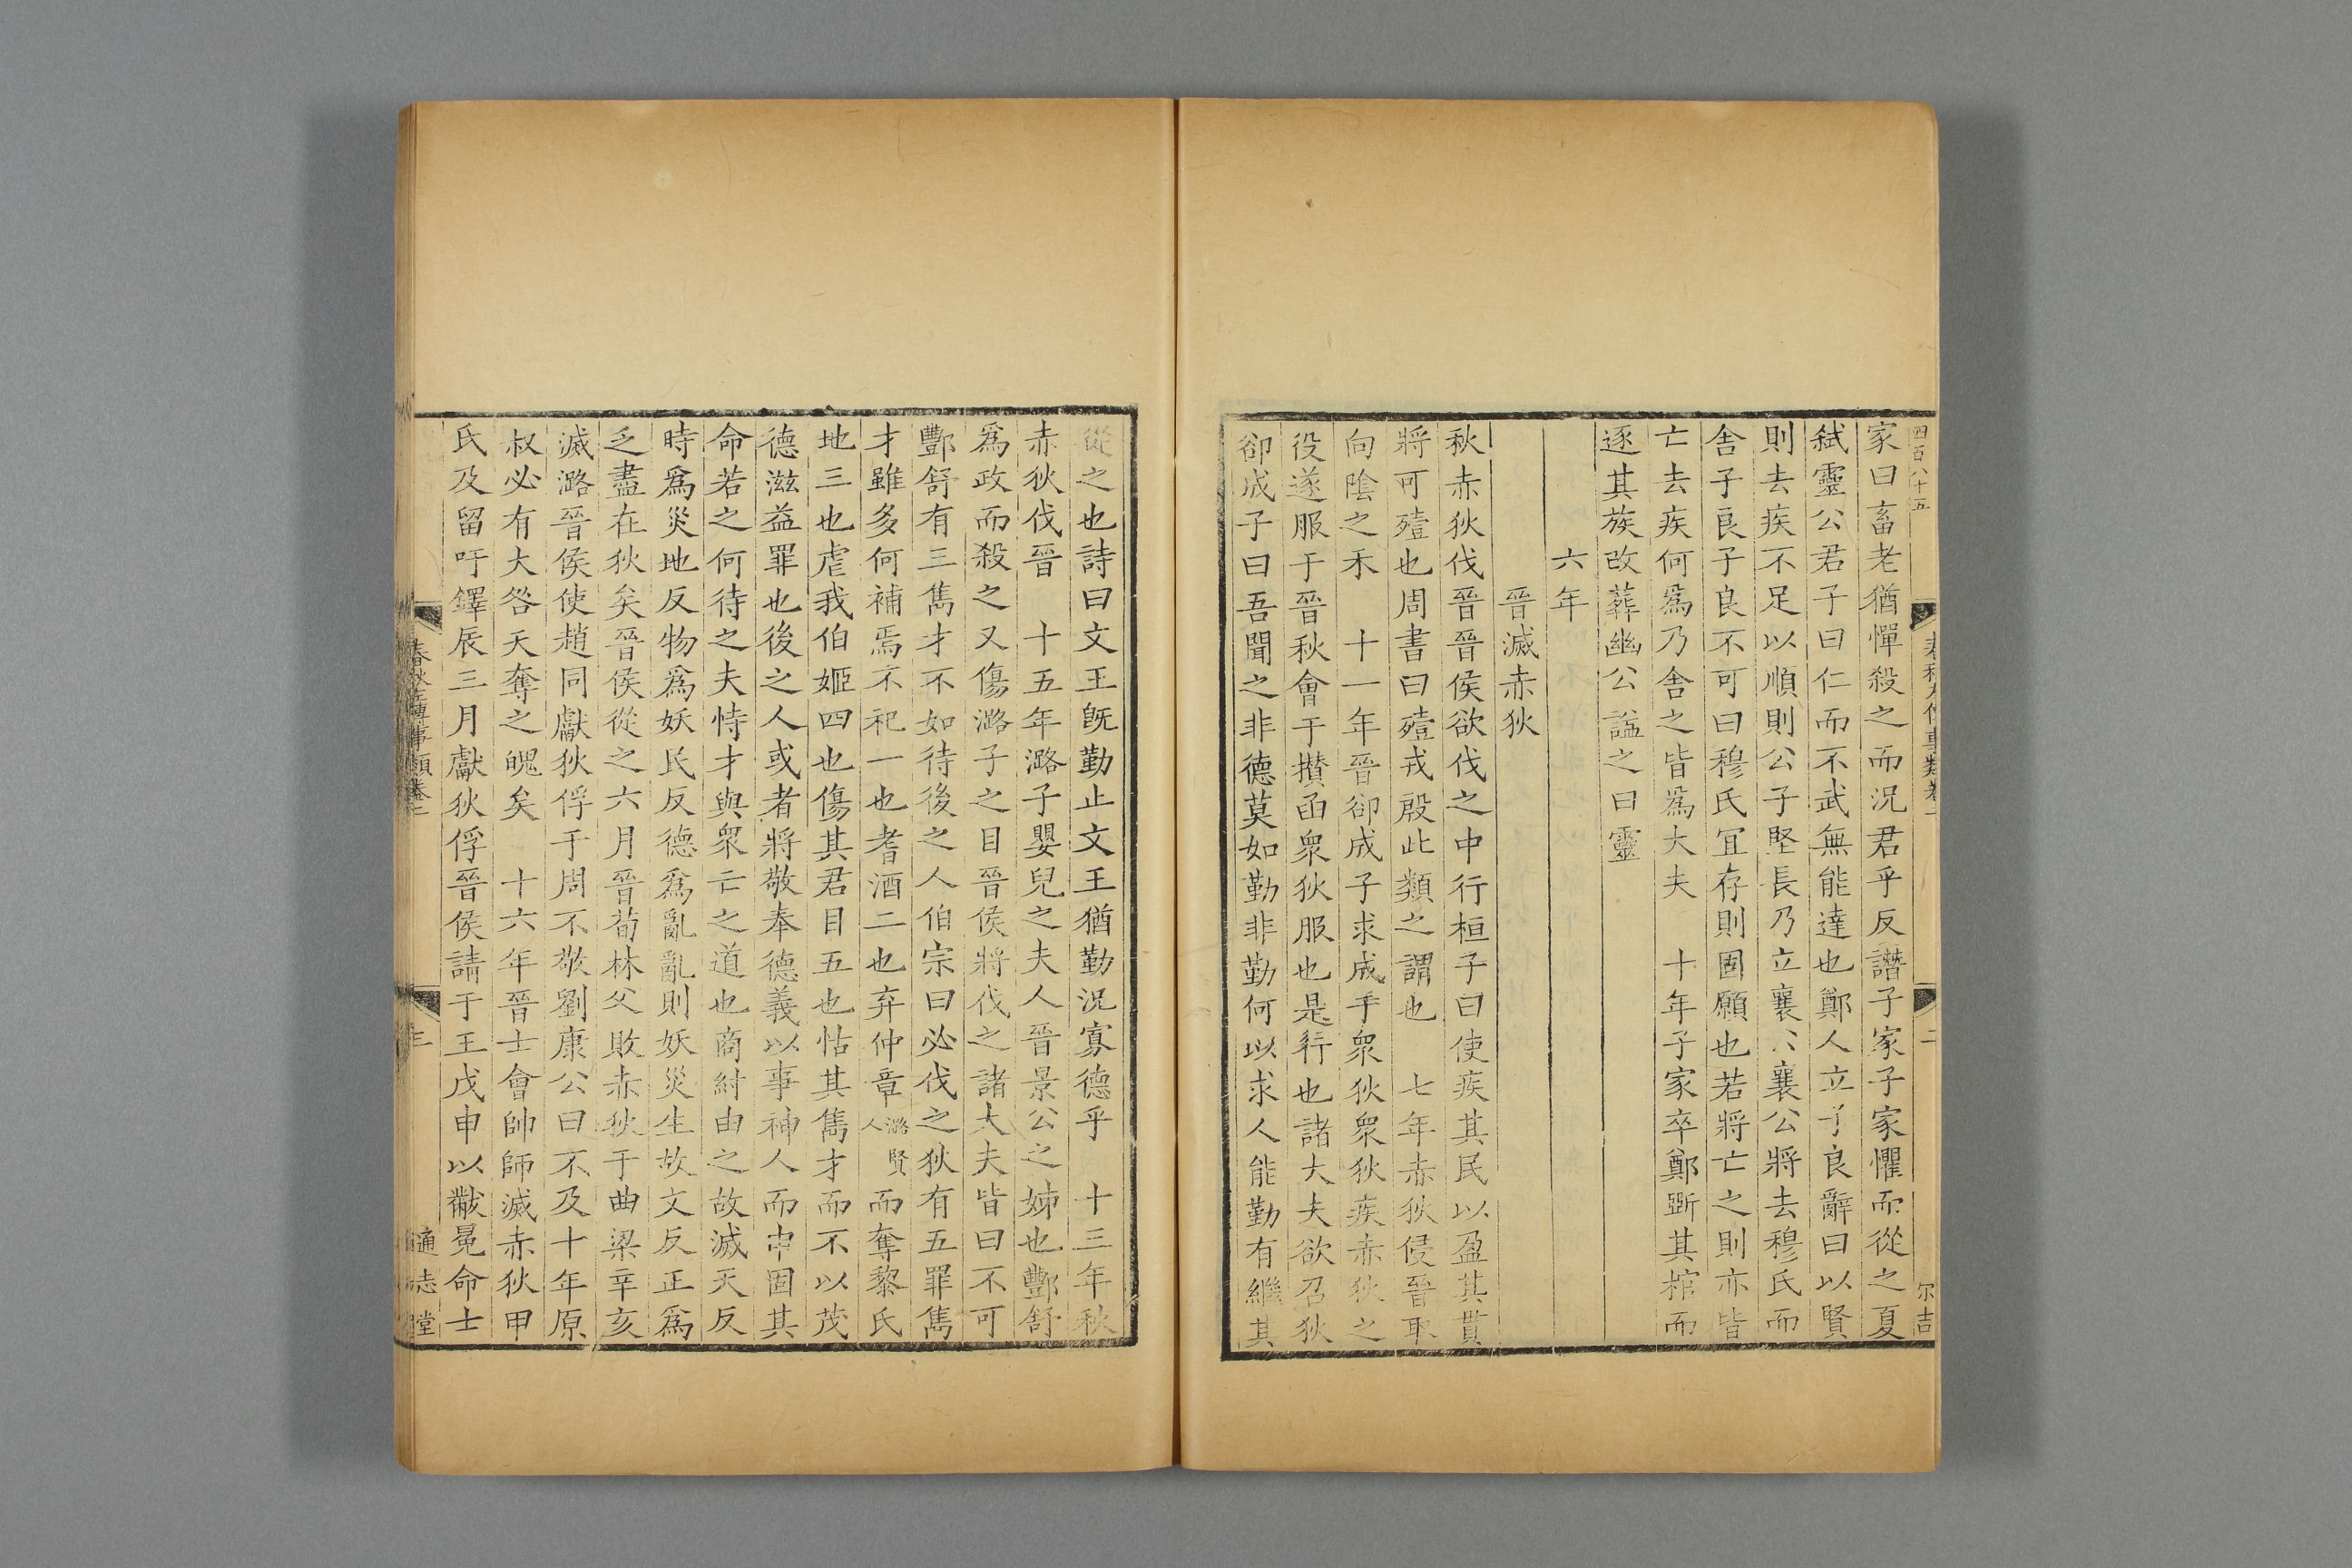 四百八十五
二
尔吉
家曰畜老猶憚殺之而況君乎反譖子家子家懼而從之夏
弑靈公君子曰仁而不武無能達也鄭人立子良辭曰以賢
則去疾不足以順則公子堅長乃立襄公襄公將去穆氏而
舍子良子良不可曰穆氏宜存則固願也若將亡之則亦皆
亡去疾何爲乃舍之皆爲大夫　十年子家卒鄭斲其棺而
逐其族改葬幽公謚之曰靈
六年
晉滅赤狄
秋赤狄伐晉晉侯欲伐之中行桓子曰使疾其民以盈其貫
將可殪也周書曰殪戎殷此類之謂也　七年赤狄侵晉取
向陰之禾　十一年晉卻成子求成乎衆狄衆狄疾赤狄之
役遂服于晉秋會于攅函衆狄服也是行也諸大夫欲召狄
卻成子曰吾聞之非德莫如勤非勤何以求人能勤有繼其
從之也詩曰文王旣勤止文王猶勤況寡德乎　十三年秋
赤狄伐晉　十五年潞子嬰兒之夫人晉景公之姊也酆舒
爲政而殺之又傷潞子之目晉侯將伐之諸大夫皆曰不可
酆舒有三雋才不如待後之人伯宗曰必伐之狄有五罪雋
才雖多何補焉不祀一也耆酒二也弃仲章潞賢人而奪黎氏
地三也虐我伯姬四也傷其君目五也怙其雋才而不以茂
德滋益罪也後之人或者將敬奉德義以事神人而申固其
命若之何待之夫恃才與衆亡之道也商紂由之故滅天反
時爲災地反物爲妖民反德爲亂亂則妖災生故文反正爲
乏盡在狄矣晉侯從之六月晉荀林父敗赤狄于曲梁辛亥
滅潞晉侯使趙同獻狄俘于周不敬劉康公曰不及十年原
叔必有大咎天奪之魄矣　十六年晉士會帥師滅赤狄甲
氏及留吁鐸辰三月獻狄俘晉侯請于王戊申以黻冕命士
春秋左傳事類卷二
三
通志堂